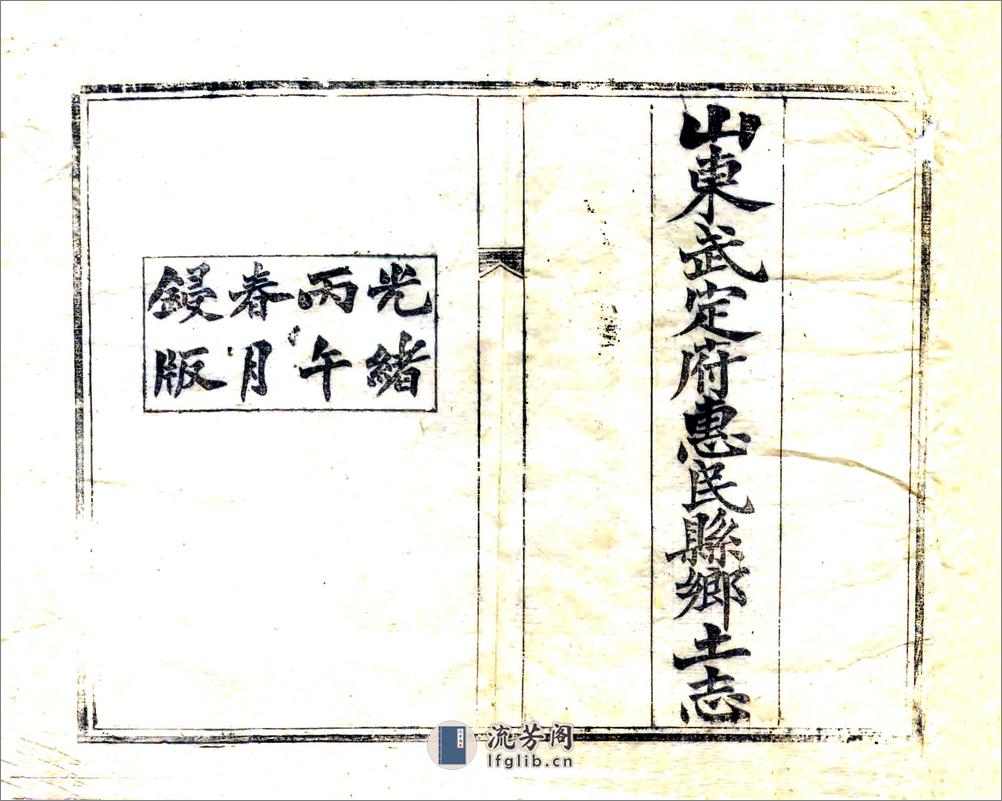 山東武定府惠民縣鄉土志
光緒
丙午
春月
鋟版
流芳阁
lfglib.cn